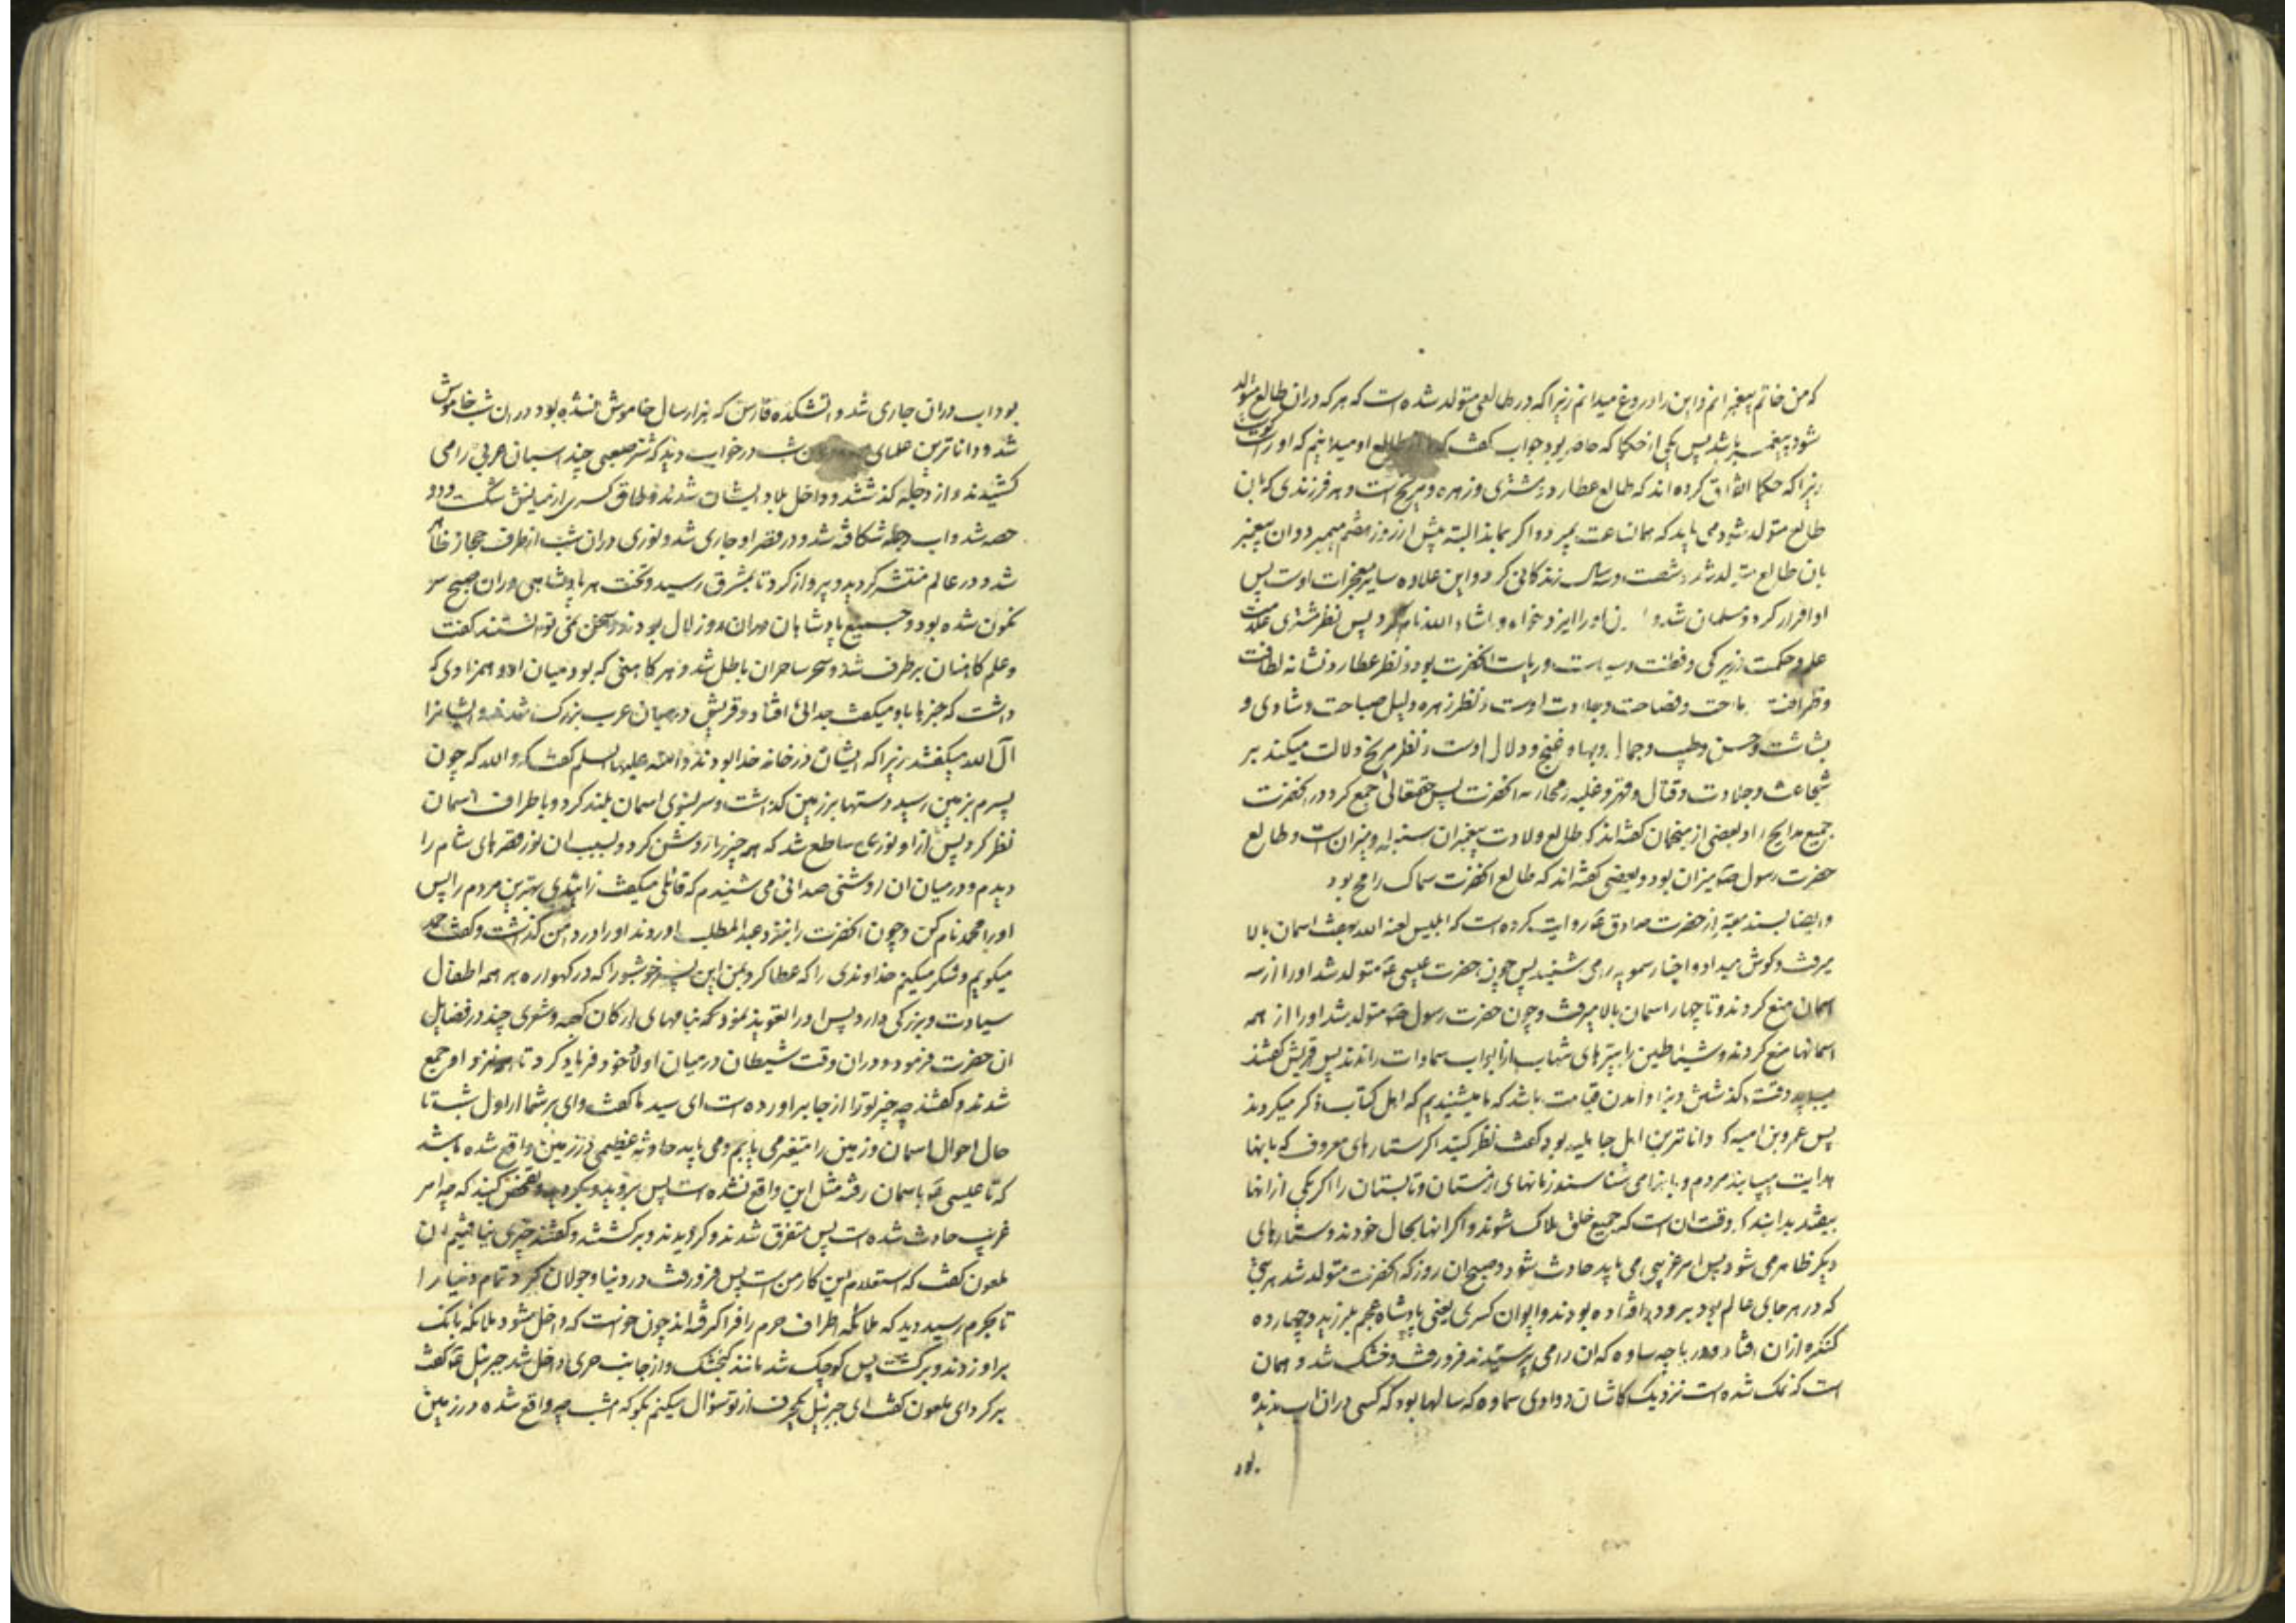 که من خاتم پیغمبرانم و این را دروغ میدانم زیرا که در طالعی متولد شده است که هر که دران طالع متولد
شود پیغمبر باشد پس یکی از حکما که حاضر بود جواب گفت که ما از طالع او میدانیم که او راست گوست
زیرا که حکما اتفاق کرده اند که طالع عطارد و مشتری و زهره و مریخ است و هر فرزندی که بان
طالع متولد شود می باید که همان ساعت بمیرد و اگر بماند البته پیش از روز هفتم میمیرد و ان پیغمبر
بان طالع متولد شد و شصت و سه سال زندکانی کرد و این علاوه سایر معجزات اوست پس
او اقرار کرد و مسلمان شد و او را ایزد خواه و انشاء الله نام کرد پس نظر مشتری علامت
علم و حکمت و زیرکی و فطنت و سیاست و ریاست انحضرت بود و نظر عطارد نشانه لطافت
و ظرافت و ملاحت و فصاحت و حلاوت اوست و نظر زهره دلیل صباحت و شادی و
بشاشت و حسن و طیب و جمال و بها و غنج و دلال اوست و نظر مریخ دلالت میکند بر
شجاعت و جلادت و قتال و قهر و غلبه و محاربه انحضرت پس حقتعالی جمع کرد در انحضرت
جمیع مدایح را و بعضی از منجمان گفته اند که طالع ولادت پیغمبران سنبله و میزان است و طالع
حضرت رسول ص میزان بود و بعضی گفته اند که طالع انحضرت سماک رامح بود
و ایضا بسند معتبر از حضرت صادق ع روایت کرده است که ابلیس لعنه الله بهفت اسمان بالا
میرفت و کوش میداد و اخبار سمویه را می شنید پس چون حضرت عیسی ع متولد شد او را از سه
اسمان منع کردند و تا چهار اسمان بالا میرفت و چون حضرت رسول ص متولد شد او را از همه
اسمانها منع کردند و شیاطین را بتیرهای شهاب از ابواب سماوات راندند پس قریش گفتند
میباید وقت گذشتن دنیا و امدن قیامت باشد که ما میشنیدیم که اهل کتاب ذکر میکردند
پس عمرو بن امیه که داناترین اهل جاهلیه بود گفت نظر کنید اگر ستارهای معروف که بانها
هدایت مییابند مردم و بانها می شناسند زمانهای زمستان و تابستان را اگر یکی از انها
بیفتد بدانید که وقت ان است که جمیع خلق هلاک شوند و اگر انها بحال خودند و ستارهای
دیگر ظاهر می شود پس امر غریبی می باید حادث شود و صبح ان روز که انحضرت متولد شد هر بتی
که در هر جای عالم بود برو در افتاده بودند و ایوان کسری یعنی پادشاه عجم بلرزید و چهارده
کنکره ازان افتاد و دریاچه ساوه که ان را می پرستیدند فرو رفت و خشک شد و همان
است که نمک شده است نزدیک کاشان و وادی سماوه که سالها بود که کسی دران اب ندیده
بود
بود اب دران جاری شد و اتشکده فارس که هزار سال خاموش نشده بود در ان شب خاموش
شد و داناترین علمای ... شب در خواب دید که شتر صعبی چند اسبان عربی را می
کشیدند و از دجله گذشتند و داخل بلاد ایشان شدند و طاق کسری از میانش شکست و دو
حصه شد و اب دجله شکافته شد و در قصر او جاری شد و نوری دران شب از طرف حجاز ظاهر
شد و در عالم منتشر کردید و پرواز کرد تا بمشرق رسید و تخت هر پادشاهی دران صبح سر
نکون شده بود و جمیع پادشاهان دران روز لال بودند و سخن نمی توانستند گفت
و علم کاهنان برطرف شد و سحر ساحران باطل شد و هر کاهنی که بود میان او و همزادی که
داشت که خبرها باو میگفت جدائی افتاد و قریش در میان عرب بزرک شدند و ایشانرا
آل الله میگفتند زیرا که ایشان در خانه خدا بودند و آمنه علیها السلم گفت که والله که چون
پسرم بزمین رسید دستها بر زمین گذاشت و سر بسوی اسمان بلند کرد و باطراف اسمان
نظر کرد پس از او نوری ساطع شد که هر چیز را روشن کرد و بسبب ان نور قصرهای شام را
دیدم و در میان ان روشنی صدائی می شنیدم که قائلی میگفت زائیدی بهترین مردم را پس
او را محمد نام کن و چون انحضرت را بنزد عبد المطلب اوردند او را در دامن گذاشت و گفت حمد
میگویم و شکر میکنم خداوندی را که عطا کرد بمن این پسر خوشبو را که در کهواره بر همه اطفال
سیادت و بزرکی دارد پس او را تعویذ نمود بدعاهای ارکان کعبه و شعری چند در فضایل
ان حضرت فرمود و دران وقت شیطان در میان اولاد خود فریاد کرد تا همه نزد او جمع
شدند و گفتند چه چیز تو را از جا براورده است ای سید ما گفت وای بر شما از اول شب تا
حال احوال اسمان و زمین را متغیر می یابم و می باید حادثه عظیمی در زمین واقع شده باشد
که تا عیسی ع باسمان رفته مثل این واقع نشده است پس بروید و بکردید و تفحص کنید که چه امر
غریب حادث شده است پس متفرق شدند و کردیدند و برکشتند و گفتند چیزی نیافتیم ان
ملعون گفت که استعلام این کار من است پس فرو رفت در دنیا و جولان کرد تمام دنیا را
تا بحرم رسید دید که ملائکه اطراف حرم را فرا گرفته اند چون خواست که داخل شود ملائکه بانک
بر او زدند و برگشت پس کوچک شد مانند کنجشک و از جانب حری داخل شد جبرئیل ع گفت
برکرد ای ملعون گفت ای جبرئیل یک حرف از تو سؤال میکنم بکو که امشب چه واقع شده در زمین